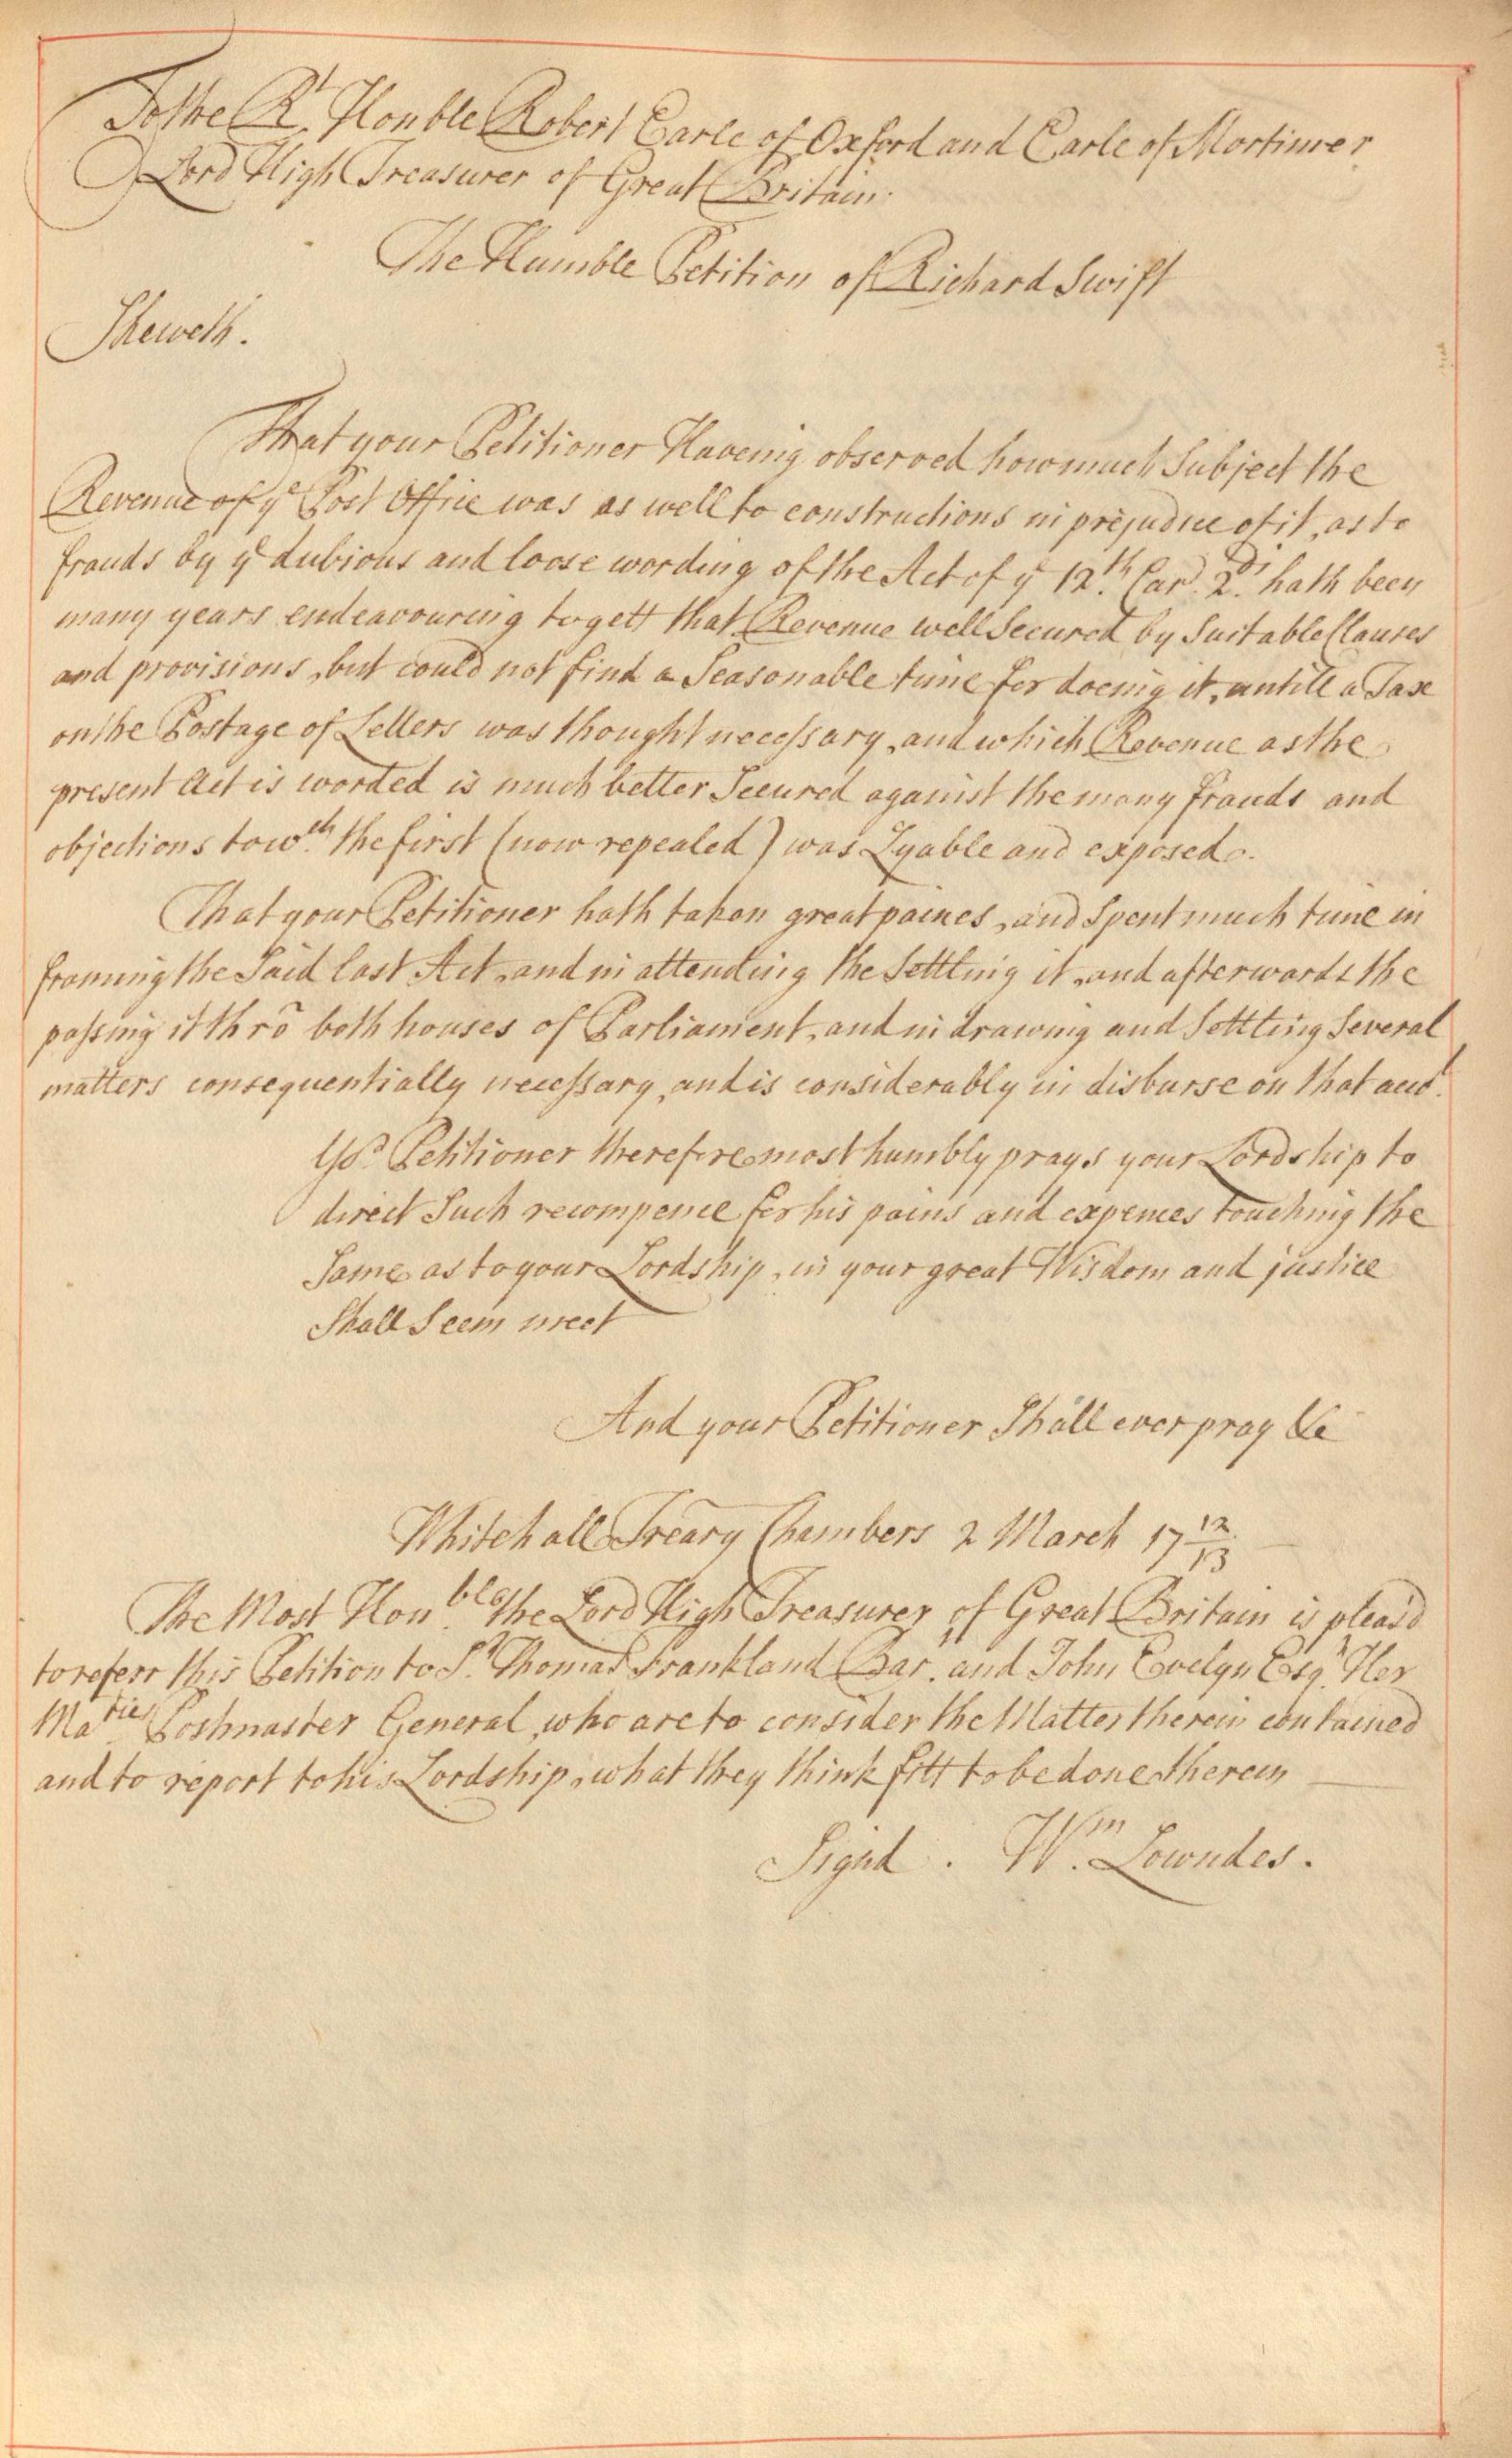 To the Rt. Honble Robert Earle of Oxford and Earle of Mortimer
Lord High Treasurer of Great Britain.
The Humble Petition of Richard Swift
Sheweth.
That your Petitioner Haveing observed how much Subject the
Revenue of ye Post Office was as well to constructions in prejudice of it, as to
frauds by ye dubious and loose wording of the Act of ye 12.th Car. 2.di hath been
many years endeavouring to gett that Revenue well Secured by Suitable Clauses
and provisions, but could not find a Seasonable time for doeing it, untill a Tax
on the Postage of Letters was thought necessary, and which Revenue as the
present Act is worded is much better Secured against the many frauds and
objections to wch. the first (now repealed) was Lyable and exposed.
That your Petitioner hath taken great paines, and Spent much time in
framing the Said last Act, and in attending the Settling it, and afterwards the
passing it thrō both houses of Parliament, and in drawing and Settling Several
matters consequentially necessary, and is considerably in disburse on that accot.
Yor. Petitioner therefore most humbly prays your Lordship to
direct Such recompence for his pains and expences touching the
Same as to your Lordship, in your great Wisdom and justice
Shall Seem meet
And your Petitioner Shall ever pray &c
Whitehall Treary Chambers 2 March 17 12/13
The Most Hon.ble the Lord High Treasurer of Great Britain is pleas'd
to referr this Petition to Sr. Thomas Frankland Bart. and John Evelyn Esqr. Her
Ma.ties Postmaster General, who are to consider the Matter therein contained
and to report to his Lordship, what they think fitt to be done therein
Signd. Wm. Lowndes.